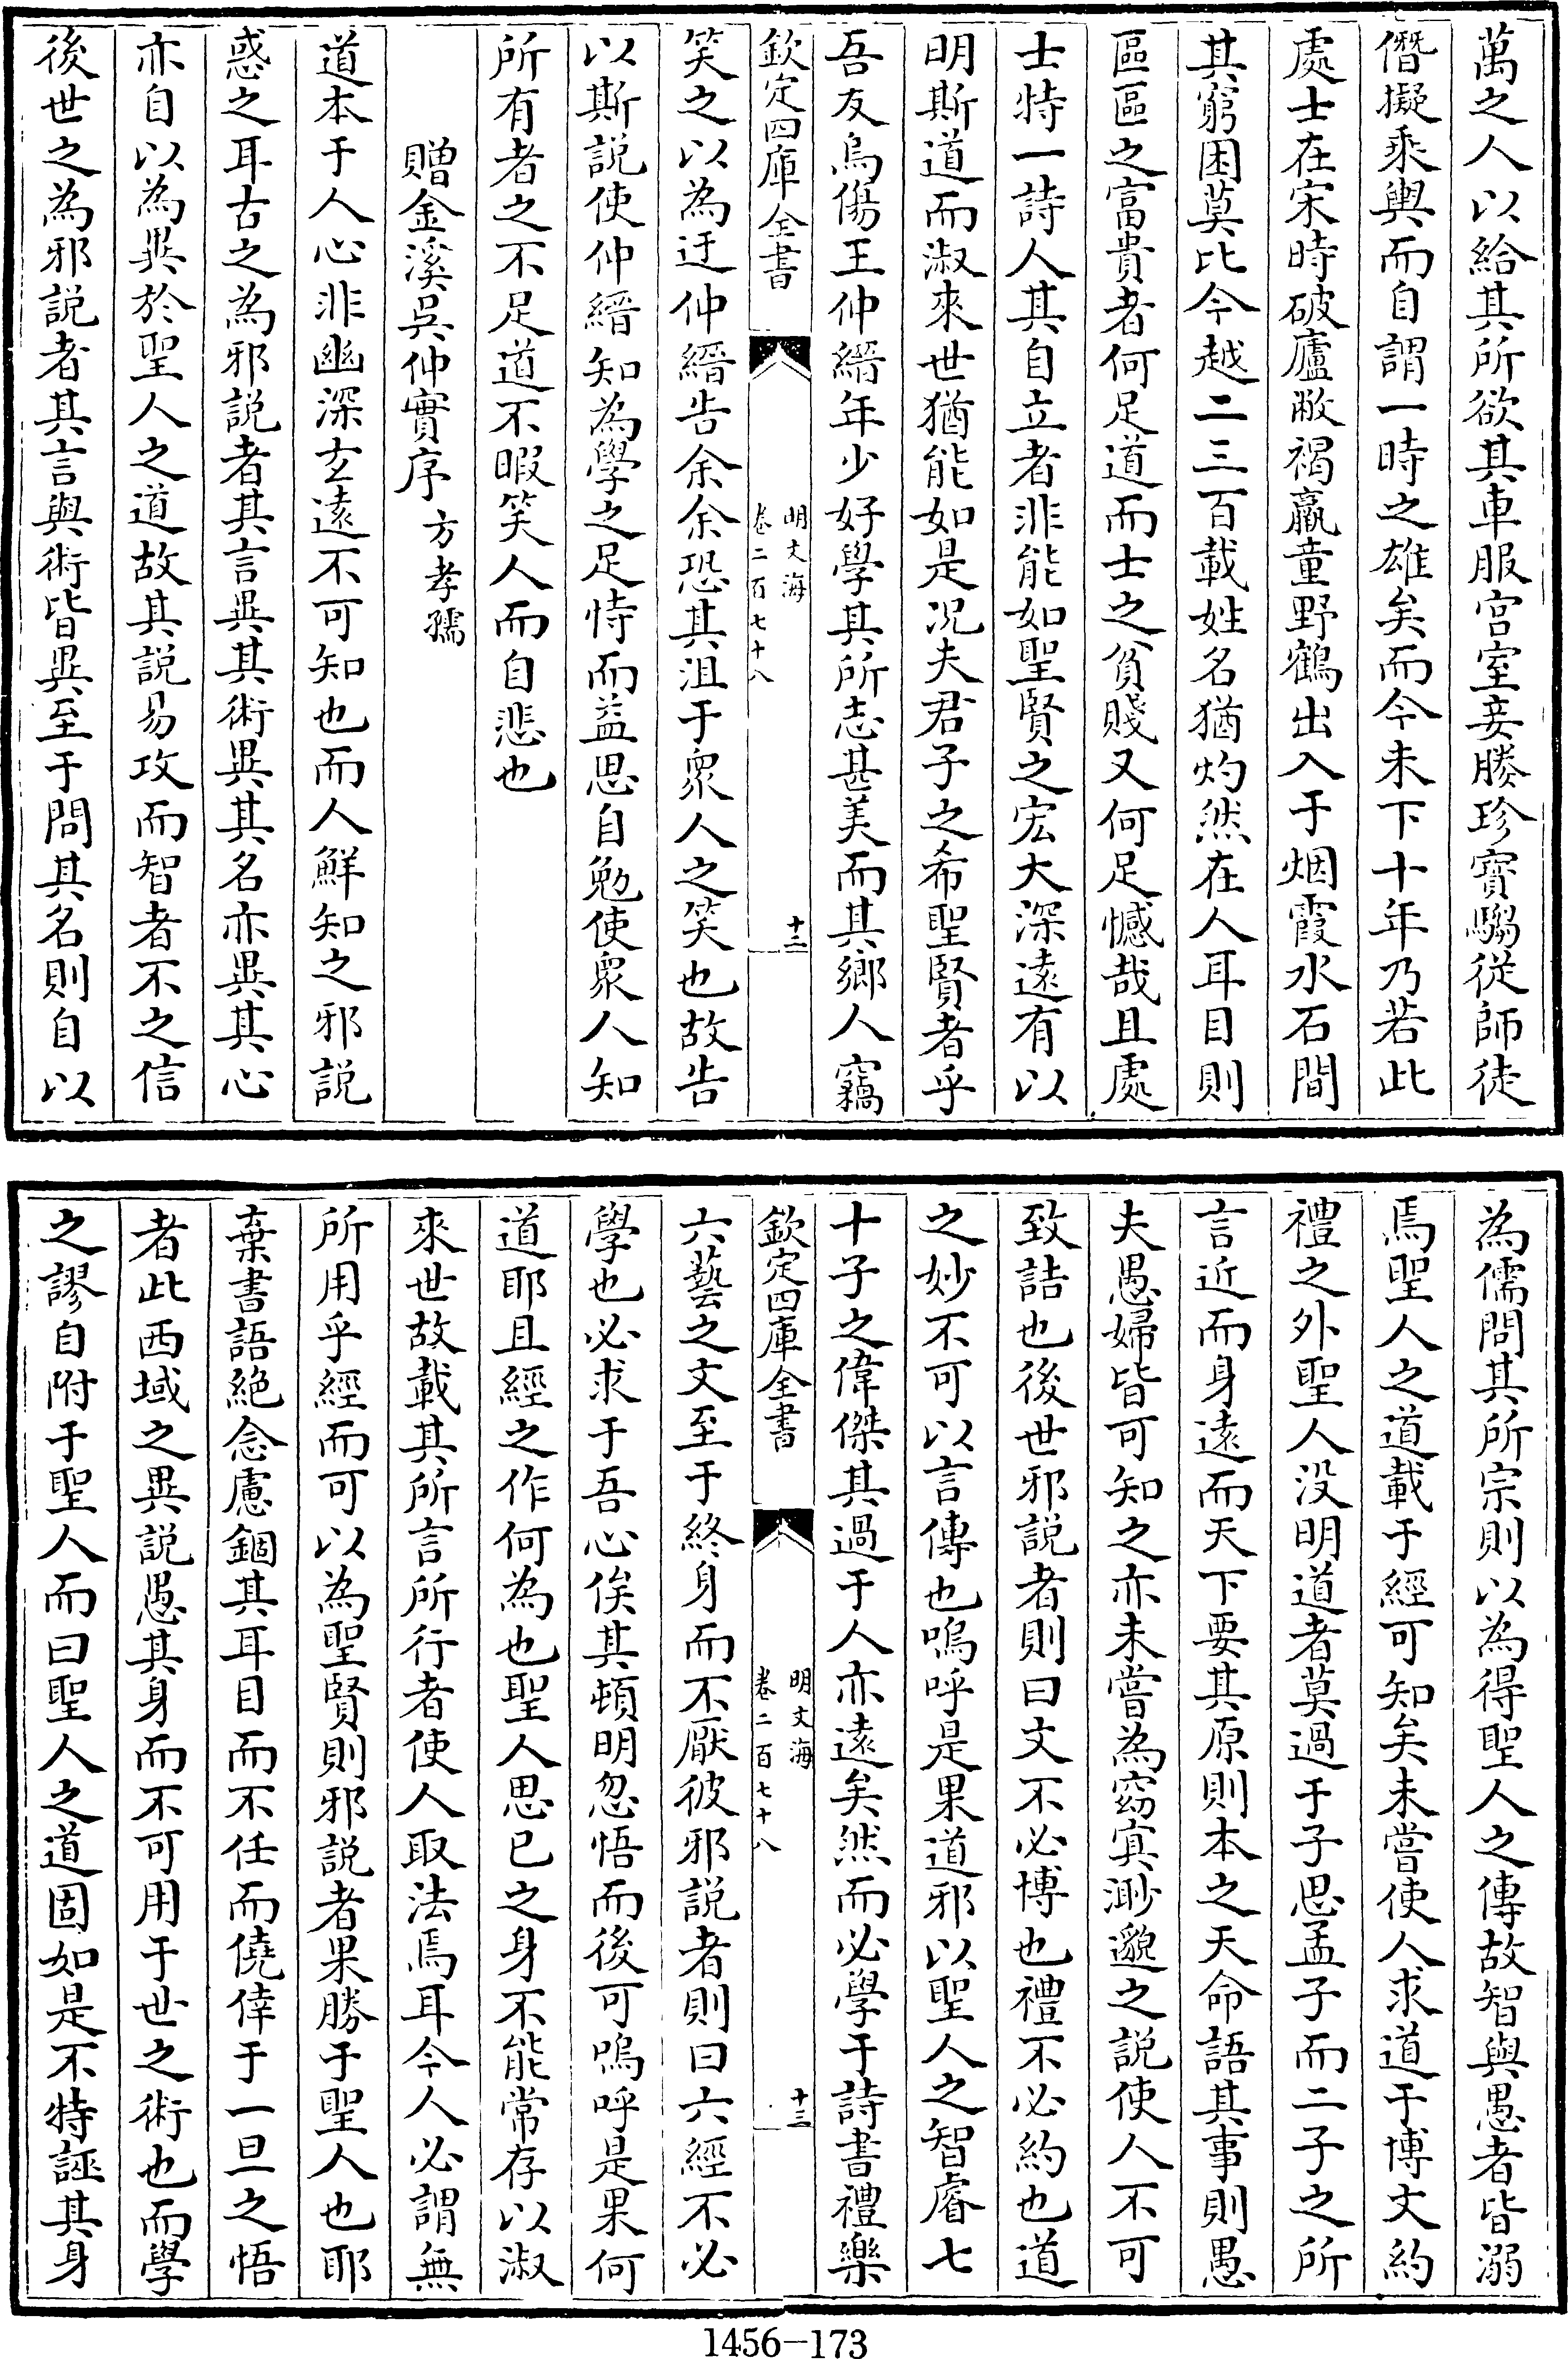 萬之人以給其所欲其車服宫室妾媵珍寳騶從師徒
僭擬乘輿而自謂一時之雄矣而今未下十年乃若此
處士在宋時破廬敝褐羸童野鶴出入于烟霞水石間
其窮困莫比今越二三百載姓名猶灼然在人耳目則
區區之富貴者何足道而士之貧賤又何足憾哉且處
士特一詩人其自立者非能如聖賢之宏大深遠有以
明斯道而淑來世猶能如是况夫君子之希聖賢者乎
吾友烏傷王仲縉年少好學其所志甚美而其鄉人竊
欽定四庫全書
明文海
卷二百七十八
十二
笑之以為迂仲縉告余余恐其沮于衆人之笑也故告
以斯説使仲縉知為學之足恃而益思自勉使衆人知
所有者之不足道不暇笑人而自悲也
贈金溪吳仲實序 方孝孺
道本于人心非幽深玄遠不可知也而人鮮知之邪説
惑之耳古之為邪説者其言異其術異其名亦異其心
亦自以為異於聖人之道故其説易攻而智者不之信
後世之為邪説者其言與術皆異至于問其名則自以
為儒問其所宗則以為得聖人之傳故智與愚者皆溺
焉聖人之道載于經可知矣未嘗使人求道于博文約
禮之外聖人没明道者莫過于子思孟子而二子之所
言近而身遠而天下要其原則本之天命語其事則愚
夫愚婦皆可知之亦未嘗為窈寘渺邈之説使人不可
致詰也後世邪説者則曰文不必博也禮不必約也道
之妙不可以言傳也嗚呼是果道邪以聖人之智睿七
十子之偉傑其過于人亦遠矣然而必學于詩書禮樂
欽定四庫全書
明文海
卷二百七十八
十三
六藝之文至于終身而不厭彼邪説者則曰六經不必
學也必求于吾心俟其頓明忽悟而後可嗚呼是果何
道耶且經之作何為也聖人思已之身不能常存以淑
來世故載其所言所行者使人取法焉耳今人必謂無
所用乎經而可以為聖賢則邪説者果勝于聖人也耶
棄書語絶念慮錮其耳目而不任而僥倖于一旦之悟
者此西域之異説愚其身而不可用于世之術也而學
之謬自附于聖人而曰聖人之道固如是不特誣其身
1456-173